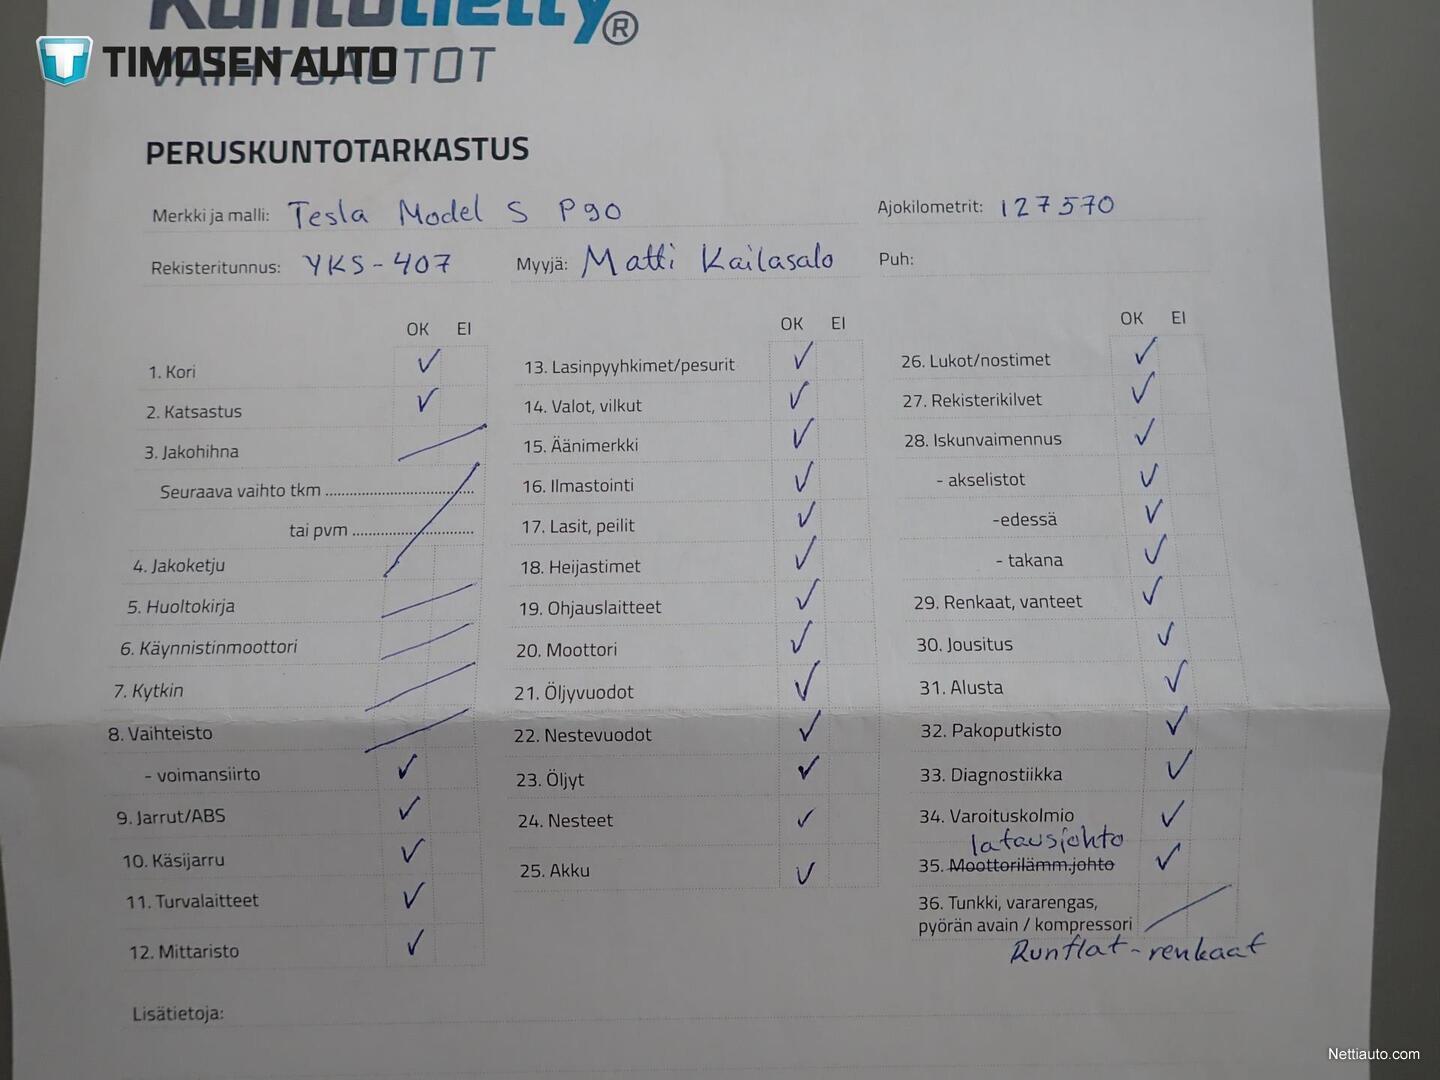 Kuntotietty®
TIMOSEN AUTO
VAIHTOAUTOT
PERUSKUNTOTARKASTUS
Merkki ja malli: Tesla Model S P90 Ajokilometrit: 127570
Rekisteritunnus: YKS-407 Myyjä: Matti Kailasalo Puh:
OK EI OK EI OK EI
1. Kori ✓
2. Katsastus ✓
3. Jakohihna
Seuraava vaihto tkm ..............................
tai pvm .........................
4. Jakoketju
5. Huoltokirja
6. Käynnistinmoottori
7. Kytkin
8. Vaihteisto
- voimansiirto ✓
9. Jarrut/ABS ✓
10. Käsijarru ✓
11. Turvalaitteet ✓
12. Mittaristo ✓
13. Lasinpyyhkimet/pesurit ✓
14. Valot, vilkut ✓
15. Äänimerkki ✓
16. Ilmastointi ✓
17. Lasit, peilit ✓
18. Heijastimet ✓
19. Ohjauslaitteet ✓
20. Moottori ✓
21. Öljyvuodot ✓
22. Nestevuodot ✓
23. Öljyt ✓
24. Nesteet ✓
25. Akku ✓
26. Lukot/nostimet ✓
27. Rekisterikilvet ✓
28. Iskunvaimennus ✓
- akselistot ✓
-edessä ✓
- takana ✓
29. Renkaat, vanteet ✓
30. Jousitus ✓
31. Alusta ✓
32. Pakoputkisto ✓
33. Diagnostiikka ✓
34. Varoituskolmio ✓
latausjohto
35. Moottorilämm.johto ✓
36. Tunkki, vararengas,
pyörän avain / kompressori
Runflat-renkaat
Lisätietoja:
Nettiauto.com